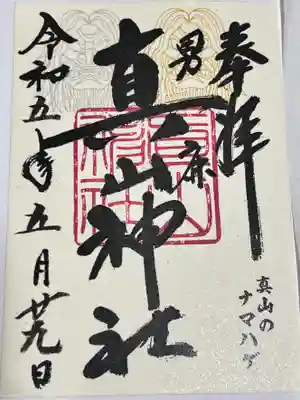 奉拝
男鹿
真山神社
令和五年五月廿九日
真山の
ナマハゲ